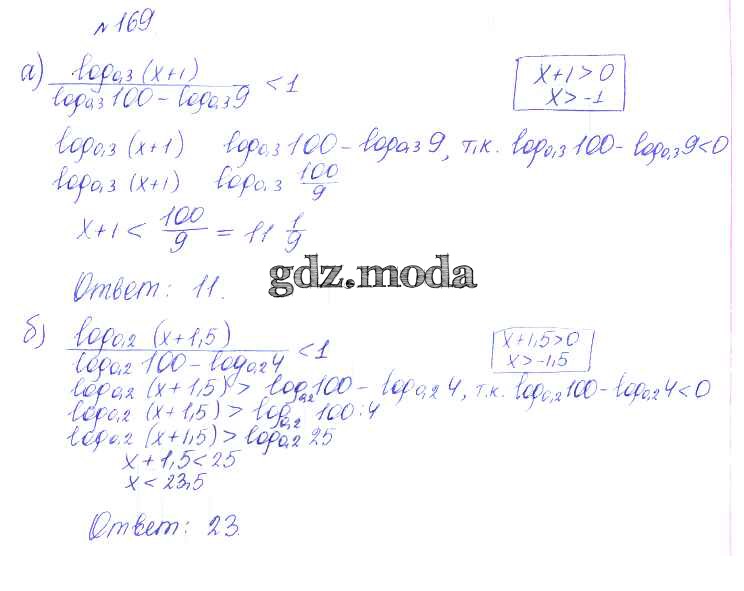 №169.
а) log₀,₃(x+1) / log₀,₃100 − log₀,₃9 < 1
x+1>0
x>-1
log₀,₃(x+1) log₀,₃100 − log₀,₃9, т.к. log₀,₃100 − log₀,₃9<0
log₀,₃(x+1) log₀,₃ 100/9
x+1 < 100/9 = 11 1/9
Ответ: 11.
gdz.moda
б) log₀,₂(x+1,5) / log₀,₂100 − log₀,₂4 < 1
x+1,5>0
x>-1,5
log₀,₂(x+1,5) > log₀,₂100 − log₀,₂4, т.к. log₀,₂100 − log₀,₂4<0
log₀,₂(x+1,5) > log₀,₂ 100:4
log₀,₂(x+1,5) > log₀,₂25
x+1,5<25
x<23,5
Ответ: 23.